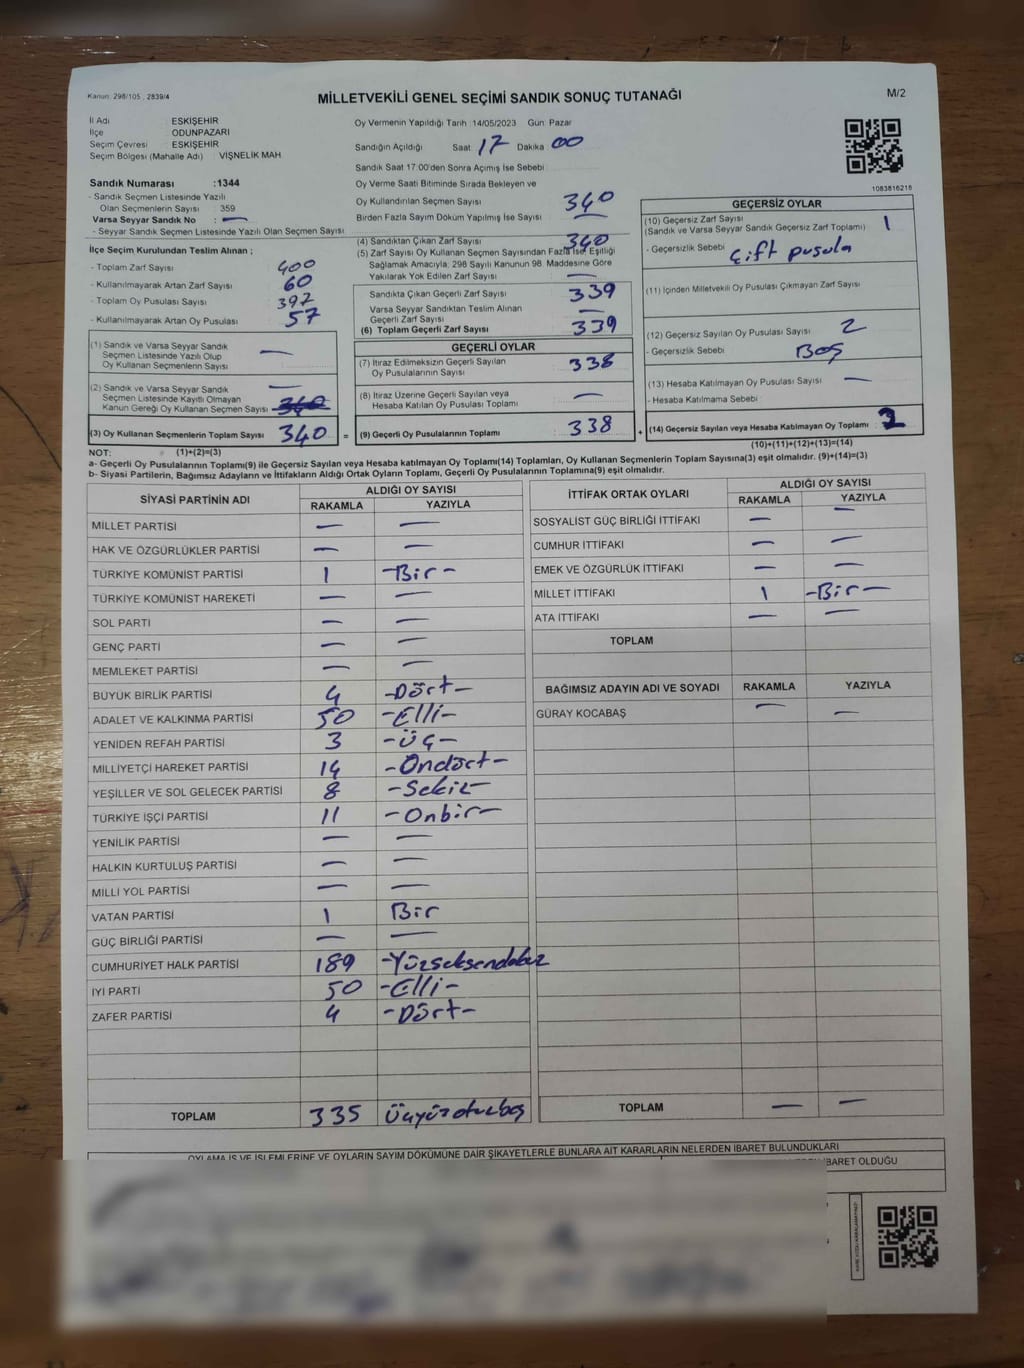 Kanun: 298/105 , 2839/4
MİLLETVEKİLİ GENEL SEÇİMİ SANDIK SONUÇ TUTANAĞI
M/2
İl Adı : ESKİŞEHİR
İlçe : ODUNPAZARI
Seçim Çevresi : ESKİŞEHİR
Seçim Bölgesi (Mahalle Adı) : VİŞNELİK MAH
Sandık Numarası :1344
- Sandık Seçmen Listesinde Yazılı
Olan Seçmenlerin Sayısı : 359
Varsa Seyyar Sandık No : —
- Seyyar Sandık Seçmen Listesinde Yazılı Olan Seçmen Sayısı :
İlçe Seçim Kurulundan Teslim Alınan ;
- Toplam Zarf Sayısı : 400
- Kullanılmayarak Artan Zarf Sayısı : 60
- Toplam Oy Pusulası Sayısı : 397
- Kullanılmayarak Artan Oy Pusulası : 57
(1) Sandık ve Varsa Seyyar Sandık
Seçmen Listesinde Yazılı Olup
Oy Kullanan Seçmenlerin Sayısı : —
(2) Sandık ve Varsa Seyyar Sandık
Seçmen Listesinde Kayıtlı Olmayan
Kanun Gereği Oy Kullanan Seçmen Sayısı : —
(3) Oy Kullanan Seçmenlerin Toplam Sayısı : 340 =
Oy Vermenin Yapıldığı Tarih :14/05/2023 Gün: Pazar
Sandığın Açıldığı Saat 17 Dakika 00
Sandık Saat 17:00'den Sonra Açımış İse Sebebi :
Oy Verme Saati Bitiminde Sırada Bekleyen ve
Oy Kullandırılan Seçmen Sayısı : 340
Birden Fazla Sayım Döküm Yapılmış İse Sayısı : —
(4) Sandıktan Çıkan Zarf Sayısı : 340
(5) Zarf Sayısı Oy Kullanan Seçmen Sayısından Fazla İse, Eşitliği
Sağlamak Amacıyla, 298 Sayılı Kanunun 98. Maddesine Göre
Yakılarak Yok Edilen Zarf Sayısı : —
Sandıkta Çıkan Geçerli Zarf Sayısı : 339
Varsa Seyyar Sandıktan Teslim Alınan
Geçerli Zarf Sayısı : —
(6) Toplam Geçerli Zarf Sayısı : 339
GEÇERLİ OYLAR
(7) İtiraz Edilmeksizin Geçerli Sayılan
Oy Pusulalarının Sayısı : 338
(8) İtiraz Üzerine Geçerli Sayılan veya
Hesaba Katılan Oy Pusulası Toplamı : —
(9) Geçerli Oy Pusulalarının Toplamı : 338 +
1083816218
GEÇERSİZ OYLAR
(10) Geçersiz Zarf Sayısı
(Sandık ve Varsa Seyyar Sandık Geçersiz Zarf Toplamı) : 1
- Geçersizlik Sebebi : Çift pusula
(11) İçinden Milletvekili Oy Pusulası Çıkmayan Zarf Sayısı :
(12) Geçersiz Sayılan Oy Pusulası Sayısı : 2
- Geçersizlik Sebebi : Boş
(13) Hesaba Katılmayan Oy Pusulası Sayısı : —
- Hesaba Katılmama Sebebi :
(14) Geçersiz Sayılan veya Hesaba Katılmayan Oy Toplamı :
(10)+(11)+(12)+(13)=(14)
NOT: (1)+(2)=(3)
a- Geçerli Oy Pusulalarının Toplamı(9) ile Geçersiz Sayılan veya Hesaba katılmayan Oy Toplamı(14) Toplamları, Oy Kullanan Seçmenlerin Toplam Sayısına(3) eşit olmalıdır. (9)+(14)=(3)
b- Siyasi Partilerin, Bağımsız Adayların ve İttifakların Aldığı Ortak Oyların Toplamı, Geçerli Oy Pusulalarının Toplamına(9) eşit olmalıdır.
SİYASİ PARTİNİN ADI ALDIĞI OY SAYISI
RAKAMLA YAZIYLA
MİLLET PARTİSİ — —
HAK VE ÖZGÜRLÜKLER PARTİSİ — —
TÜRKİYE KOMÜNİST PARTİSİ 1 -Bir-
TÜRKİYE KOMÜNİST HAREKETİ — —
SOL PARTİ — —
GENÇ PARTİ — —
MEMLEKET PARTİSİ — —
BÜYÜK BİRLİK PARTİSİ 4 -Dört-
ADALET VE KALKINMA PARTİSİ 50 -Elli-
YENİDEN REFAH PARTİSİ 3 -Üç-
MİLLİYETÇİ HAREKET PARTİSİ 14 -Ondört-
YEŞİLLER VE SOL GELECEK PARTİSİ 8 -Sekiz-
TÜRKİYE İŞÇİ PARTİSİ 11 -Onbir-
YENİLİK PARTİSİ — —
HALKIN KURTULUŞ PARTİSİ — —
MİLLİ YOL PARTİSİ — —
VATAN PARTİSİ 1 Bir
GÜÇ BİRLİĞİ PARTİSİ — —
CUMHURİYET HALK PARTİSİ 189 -Yüzseksendokuz
İYİ PARTİ 50 -Elli-
ZAFER PARTİSİ 4 -Dört-
TOPLAM 335 Üçyüzotuzbeş
İTTİFAK ORTAK OYLARI ALDIĞI OY SAYISI
RAKAMLA YAZIYLA
SOSYALİST GÜÇ BİRLİĞİ İTTİFAKI — —
CUMHUR İTTİFAKI — —
EMEK VE ÖZGÜRLÜK İTTİFAKI — —
MİLLET İTTİFAKI 1 -Bir-
ATA İTTİFAKI — —
TOPLAM
BAĞIMSIZ ADAYIN ADI VE SOYADI RAKAMLA YAZIYLA
GÜRAY KOCABAŞ — —
TOPLAM — —
OYLAMA İŞ VE İŞLEMLERİNE VE OYLARIN SAYIM DÖKÜMÜNE DAİR ŞİKAYETLERLE BUNLARA AİT KARARLARIN NELERDEN İBARET BULUNDUKLARI
İBARET OLDUĞU